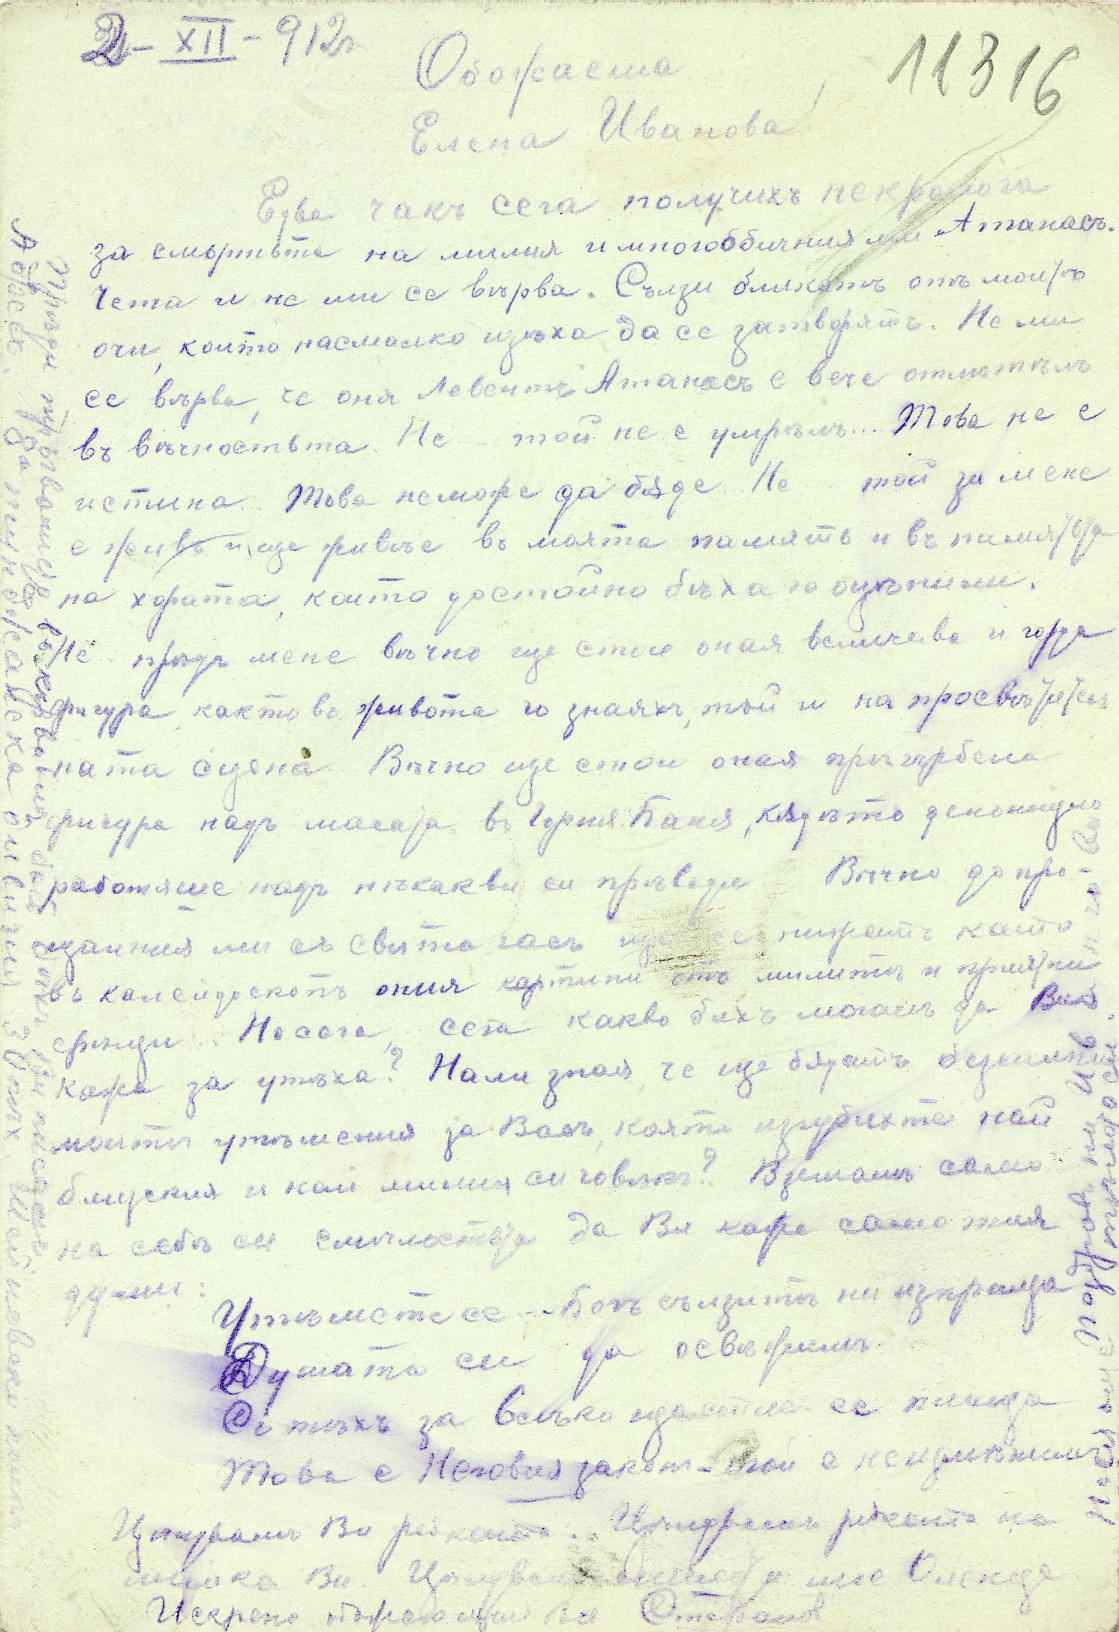 2-XII-912г
11316
Обожаема
Елена Иванова!
Едва чакъ сега получихъ некролога
за смъртьта на милия и многообичния ми Атанасъ.
Чета и не ми се вѣрва. Сълзи бликатъ отъ моитѣ
очи, които насмалко щѣха да се затворятъ. Не ми
се вѣрва, че оня левентъ Атанасъ е вече отлѣтѣлъ
въ вѣчностьта. Не.. той не е умрѣлъ... Това не е
истина. Това неможе да бѫде. Не.. той за мене
е живъ и ще живѣе въ моята паметь и въ паметьта
на хората, които достойно бѣха го оцѣнили.
Не.. прѣдъ мене вѣчно ще стои оная величава и горда
фигура, както въ живота го знаяхъ, тъй и на
ната сцена. Вѣчно ще стои оная пригърбена
фигура надъ масата въ Горня Баня, кѫдѣто денонощно
работяше надъ нѣкакви си прѣводи. Вѣчно до про-
щалния ми съ свѣта часъ ще се нижатъ като
въ калейдоскопъ ония картини отъ милитѣ и приятни
срѣщи. Но сега, сега какво бихъ могълъ да Ви
кажа за утѣха? Нали зная, че ще бѫдатъ безсилни
моитѣ утѣшения за Васъ, която изгубихте най
близкия и най милия си човѣкъ? Вземамъ само
на себѣ си смѣлостьта да Ви кажа само тия
думи:
Утѣшете се -- Богъ сълзитѣ ни изпраща
Душата си да освѣжимъ.
Съ тѣхъ за всѣко щастие се плаща
Това е Неговия законъ - той е неизмѣнимъ
Цѣлувамъ Ви рѫката. Цѣлувамъ рѫката на
майка Ви. Цѣлувамъ
Искрено Ви Стефанов
Адресъ: